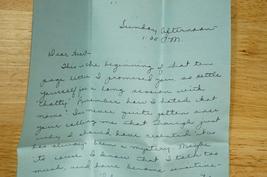 Sunday Afternoon
1:30 P.M.
Dear
This the beginning of that ten
page letter I promised you so settle
yourself for a long session with
Chatty. Remember how I hated that
name? I'm never quite gotten over
your calling me that though just
why I should have resented it so
has always been a mystery. Maybe
its cause I know that I talk too
much, and have become sensitive